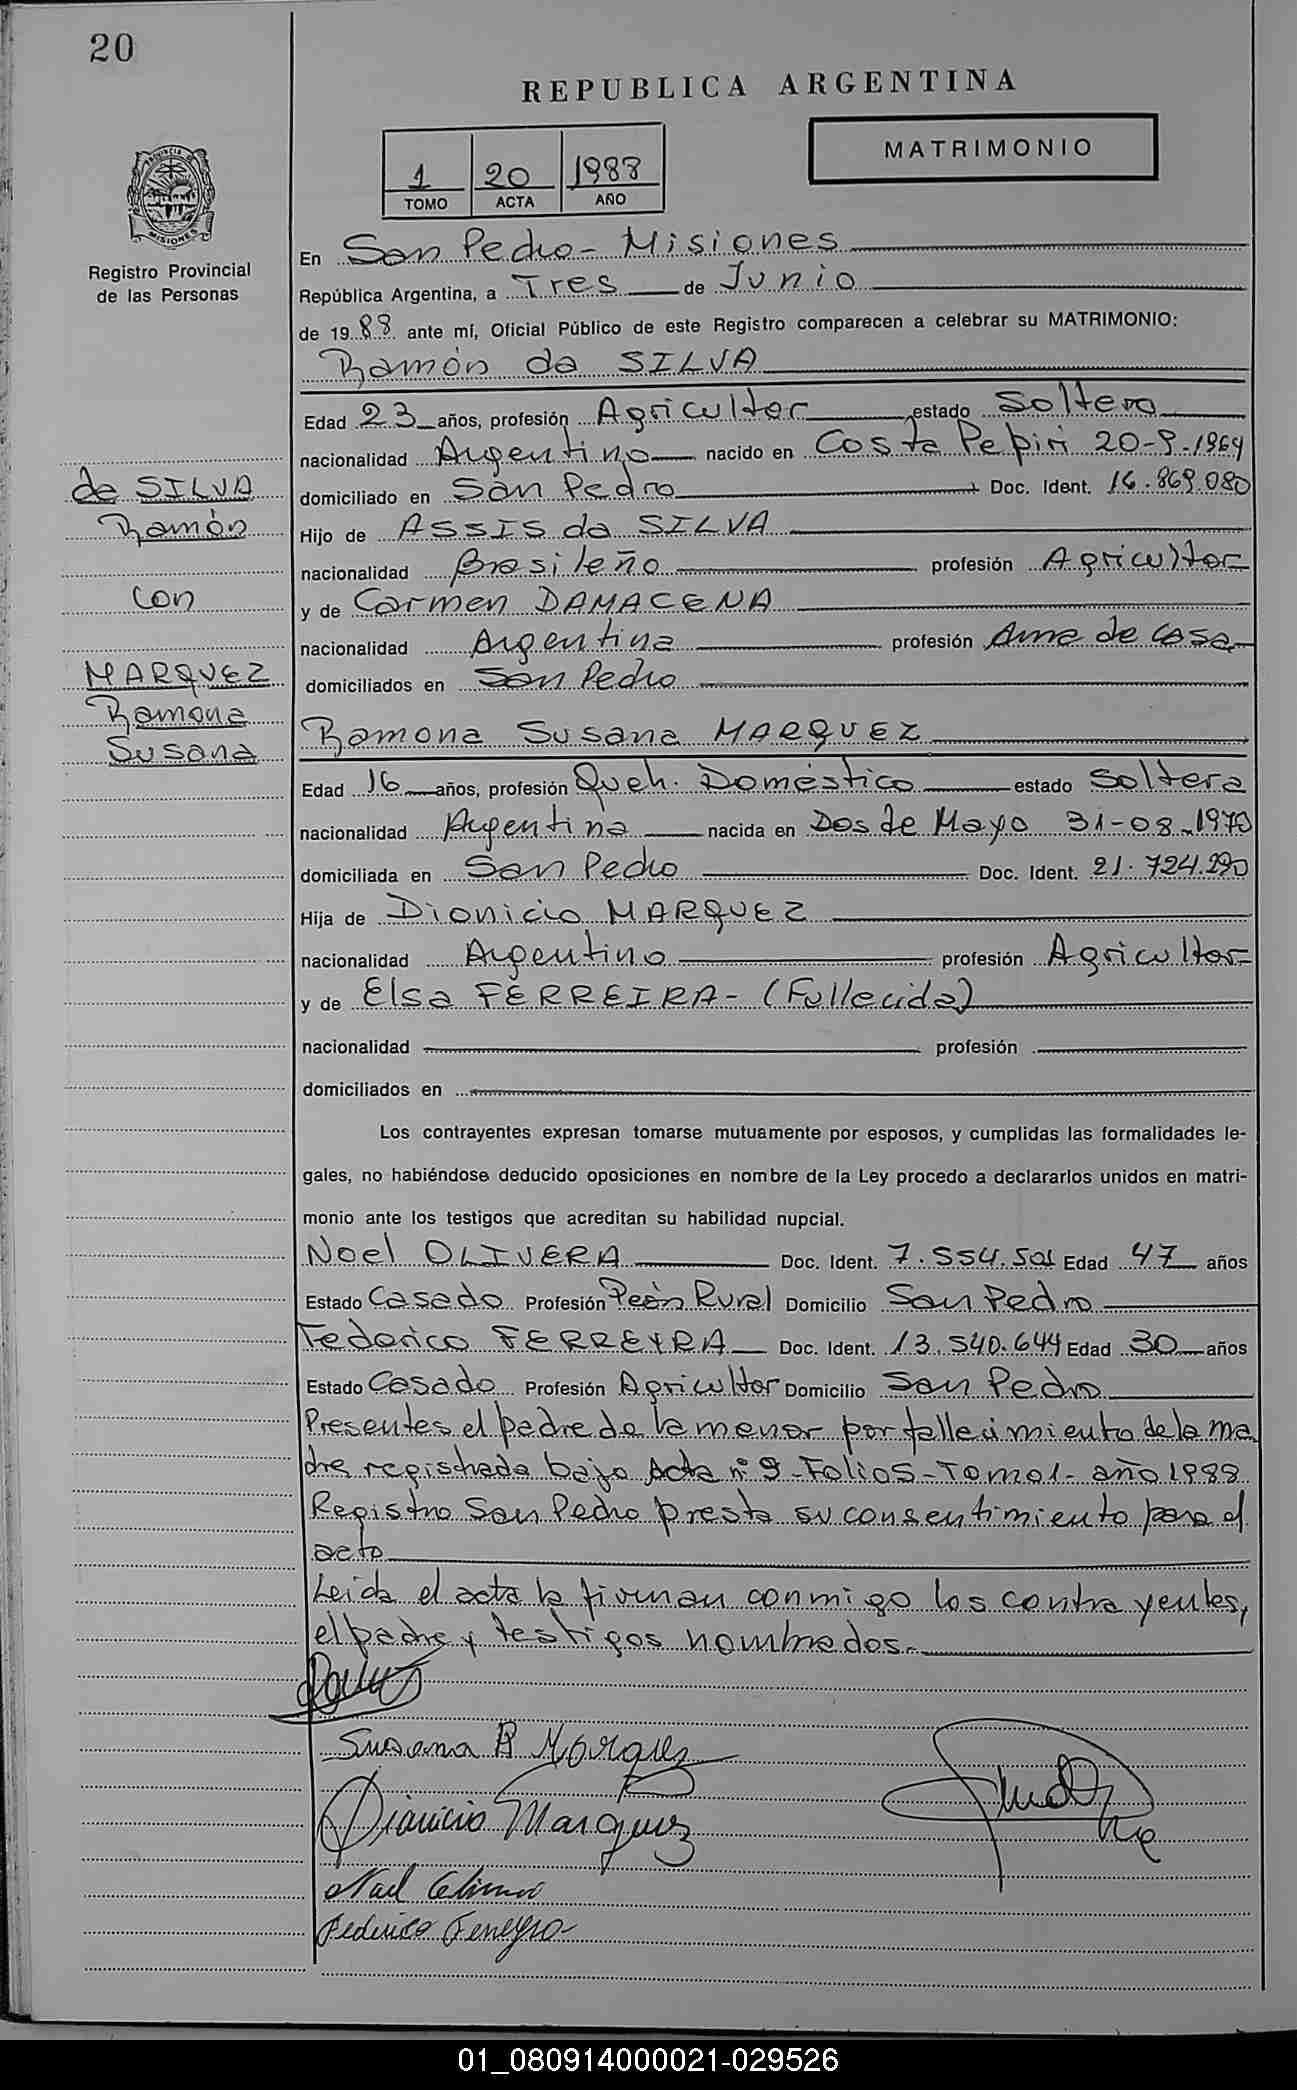 20
REPUBLICA ARGENTINA
MATRIMONIO
1 20 1988
TOMO ACTA AÑO
PROVINCIA DE
MISIONES
Registro Provincial
de las Personas
En San Pedro - Misiones
República Argentina, a Tres de Junio
de 1988 ante mí, Oficial Público de este Registro comparecen a celebrar su MATRIMONIO:
Ramón da SILVA
Edad 23 años, profesión Agricultor estado Soltero
nacionalidad Argentino nacido en Costa Pepiri 20-9-1964
de SILVA
domiciliado en San Pedro Doc. Ident. 16.869.080
Ramón
Hijo de ASSIS da SILVA
nacionalidad Brasileño profesión Agricultor
con
y de Carmen DAMACENA
nacionalidad Argentina profesión Ama de casa
MARQUEZ
domiciliados en San Pedro
Ramona
Susana
Ramona Susana MARQUEZ
Edad 16 años, profesión Queh. Doméstico estado Soltera
nacionalidad Argentina nacida en Dos de Mayo 31-08-1970
domiciliada en San Pedro Doc. Ident. 21.724.290
Hija de Dionicio MARQUEZ
nacionalidad Argentino profesión Agricultor
y de Elsa FERREIRA - (Fallecida)
nacionalidad profesión
domiciliados en
Los contrayentes expresan tomarse mutuamente por esposos, y cumplidas las formalidades le-
gales, no habiéndose deducido oposiciones en nombre de la Ley procedo a declararlos unidos en matri-
monio ante los testigos que acreditan su habilidad nupcial.
Noel OLIVERA Doc. Ident. 7.554.501 Edad 47 años
Estado Casado Profesión Peón Rural Domicilio San Pedro
Federico FERREYRA Doc. Ident. 13.540.644 Edad 30 años
Estado Casado Profesión Agricultor Domicilio San Pedro
Presentes el padre de la menor por fallecimiento de la ma
dre registrada bajo Acta nº 9 - Folio 5 - Tomo 1 - año 1988
Registro San Pedro presta su consentimiento para el
acto
Leida el acta la firman conmigo los contrayentes,
el padre y testigos nombrados.
Susana R Marquez
Dionicio Marquez
Noel Olivera
Federico Ferreyra
01_080914000021-029526